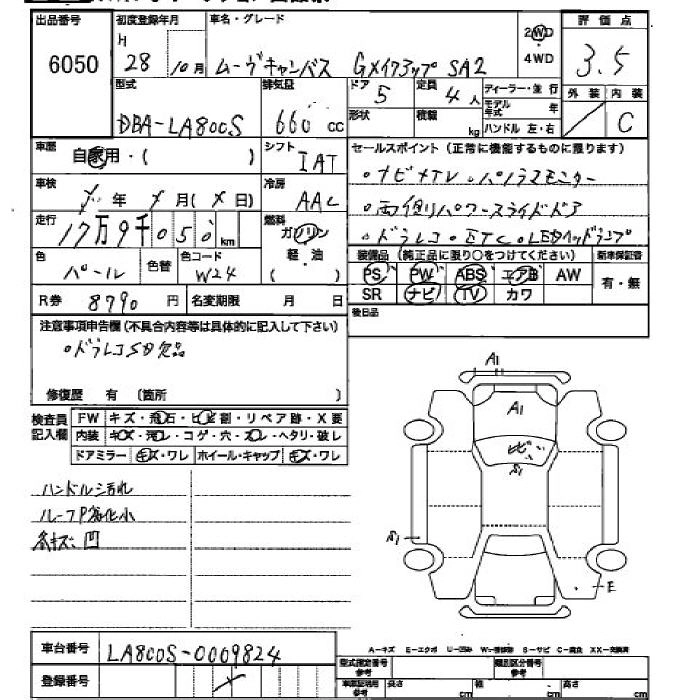 出品番号 初度登録年月 車名・グレード 評価点
6050 H 28年 10月 ムーヴキャンバス GメイクアップSA2 2WD 4WD 3.5
型式 排気量 ドア 定員 ディーラー・並行 外装 内装
DBA-LA800S 660cc 5 4人 モデル年式 年 C
形状 積載 kg ハンドル 左・右
車歴 自家用・( ) シフト IAT セールスポイント(正常に機能するものに限ります)
車検 年 月( 日) 冷房 AAC ・ナビ・TV・パノラマモニター
・両側パワースライドドア
走行 17万9千050km 燃料 ガソリン 軽・油 ( ) ・ドラレコ・ETC・LEDヘッドランプ
色 パール 色替 色コード W24 装備品(純正品に限り○をつけてください) 新車保証書
PS PW ABS エアB AW 有・無
R券 8790円 名変期限 月 日 SR ナビ TV カワ
注意事項申告欄(不具合内容等は具体的に記入して下さい) 後日品
・ドラレコSD欠品
修復歴 有 (箇所 )
検査員記入欄 FW キズ・飛石・ヒビ割・リペア跡・X要
内装 キズ・汚れ・コゲ・穴・スレ・ヘタリ・破レ
ドアミラー キズ・ワレ ホイール・キャップ キズ・ワレ
A1
A1
ビ
S1
ハンドル汚れ
ルーフP劣化小
各キズ、凹
S1
E
車台番号 LA800S-0009824 A−キズ E−エクボ U−凹み S−サビ C−腐食 XX−交換済
登録番号 型式指定番号 参考 類別区分番号 参考
長さ cm 幅 cm 高さ cm